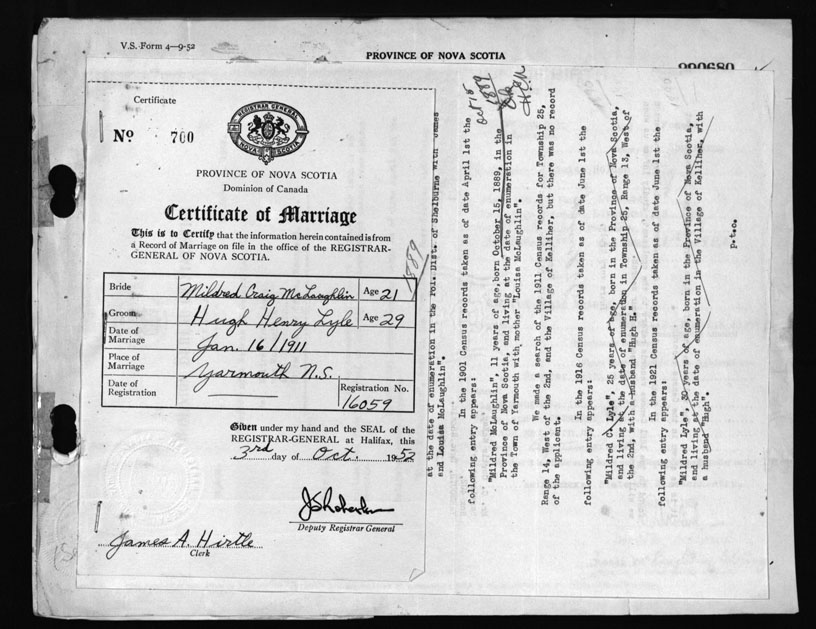 V.S. Form 4—9-52
PROVINCE OF NOVA SCOTIA
990680
Certificate
No 700
REGISTRAR GENERAL
NOVA SCOTIA
PROVINCE OF NOVA SCOTIA
Dominion of Canada
Certificate of Marriage
This is to Certify that the information herein contained is from
a Record of Marriage on file in the office of the REGISTRAR-
GENERAL OF NOVA SCOTIA.
1889
Bride Mildred Craig McLaughlin Age 21
Groom Hugh Henry Lyle Age 29
Date of
Marriage Jan. 16/1911
Place of
Marriage Yarmouth N.S.
Date of
Registration
Registration No.
16059
Given under my hand and the SEAL of the
REGISTRAR-GENERAL at Halifax, this
3rd day of Oct. 1952
Deputy Registrar General
James A. Hirtle
Clerk
at the date of enumeration in the Poll. Dist. of Shelburne with James
and Louisa McLaughlin".
Oct 15
1889
In the 1901 Census records taken as of date April 1st the
following entry appears:
"Mildred McLaughlin", 11 years of age, born October 15, 1889, in the
Province of Nova Scotia, and living at the date of enumeration in
the Town of Yarmouth with mother "Louisa McLaughlin".
We made a search of the 1911 Census records for Township 25,
Range 14, West of the 2nd, and the Village of Kelliher, but there was no record
of the applicant.
In the 1916 Census records taken as of date June 1st the
following entry appears:
"Mildred C. Lyle", 25 years of age, born in the Province of Nova Scotia,
and living at the date of enumeration in Township 25, Range 13, West of
the 2nd, with a husband "Hugh H."
In the 1921 Census records taken as of date June 1st the
following entry appears:
"Mildred Lyle", 30 years of age, born in the Province of Nova Scotia,
and living at the date of enumeration in the Village of Kelliher, with
a husband "Hugh".
P.t.o.